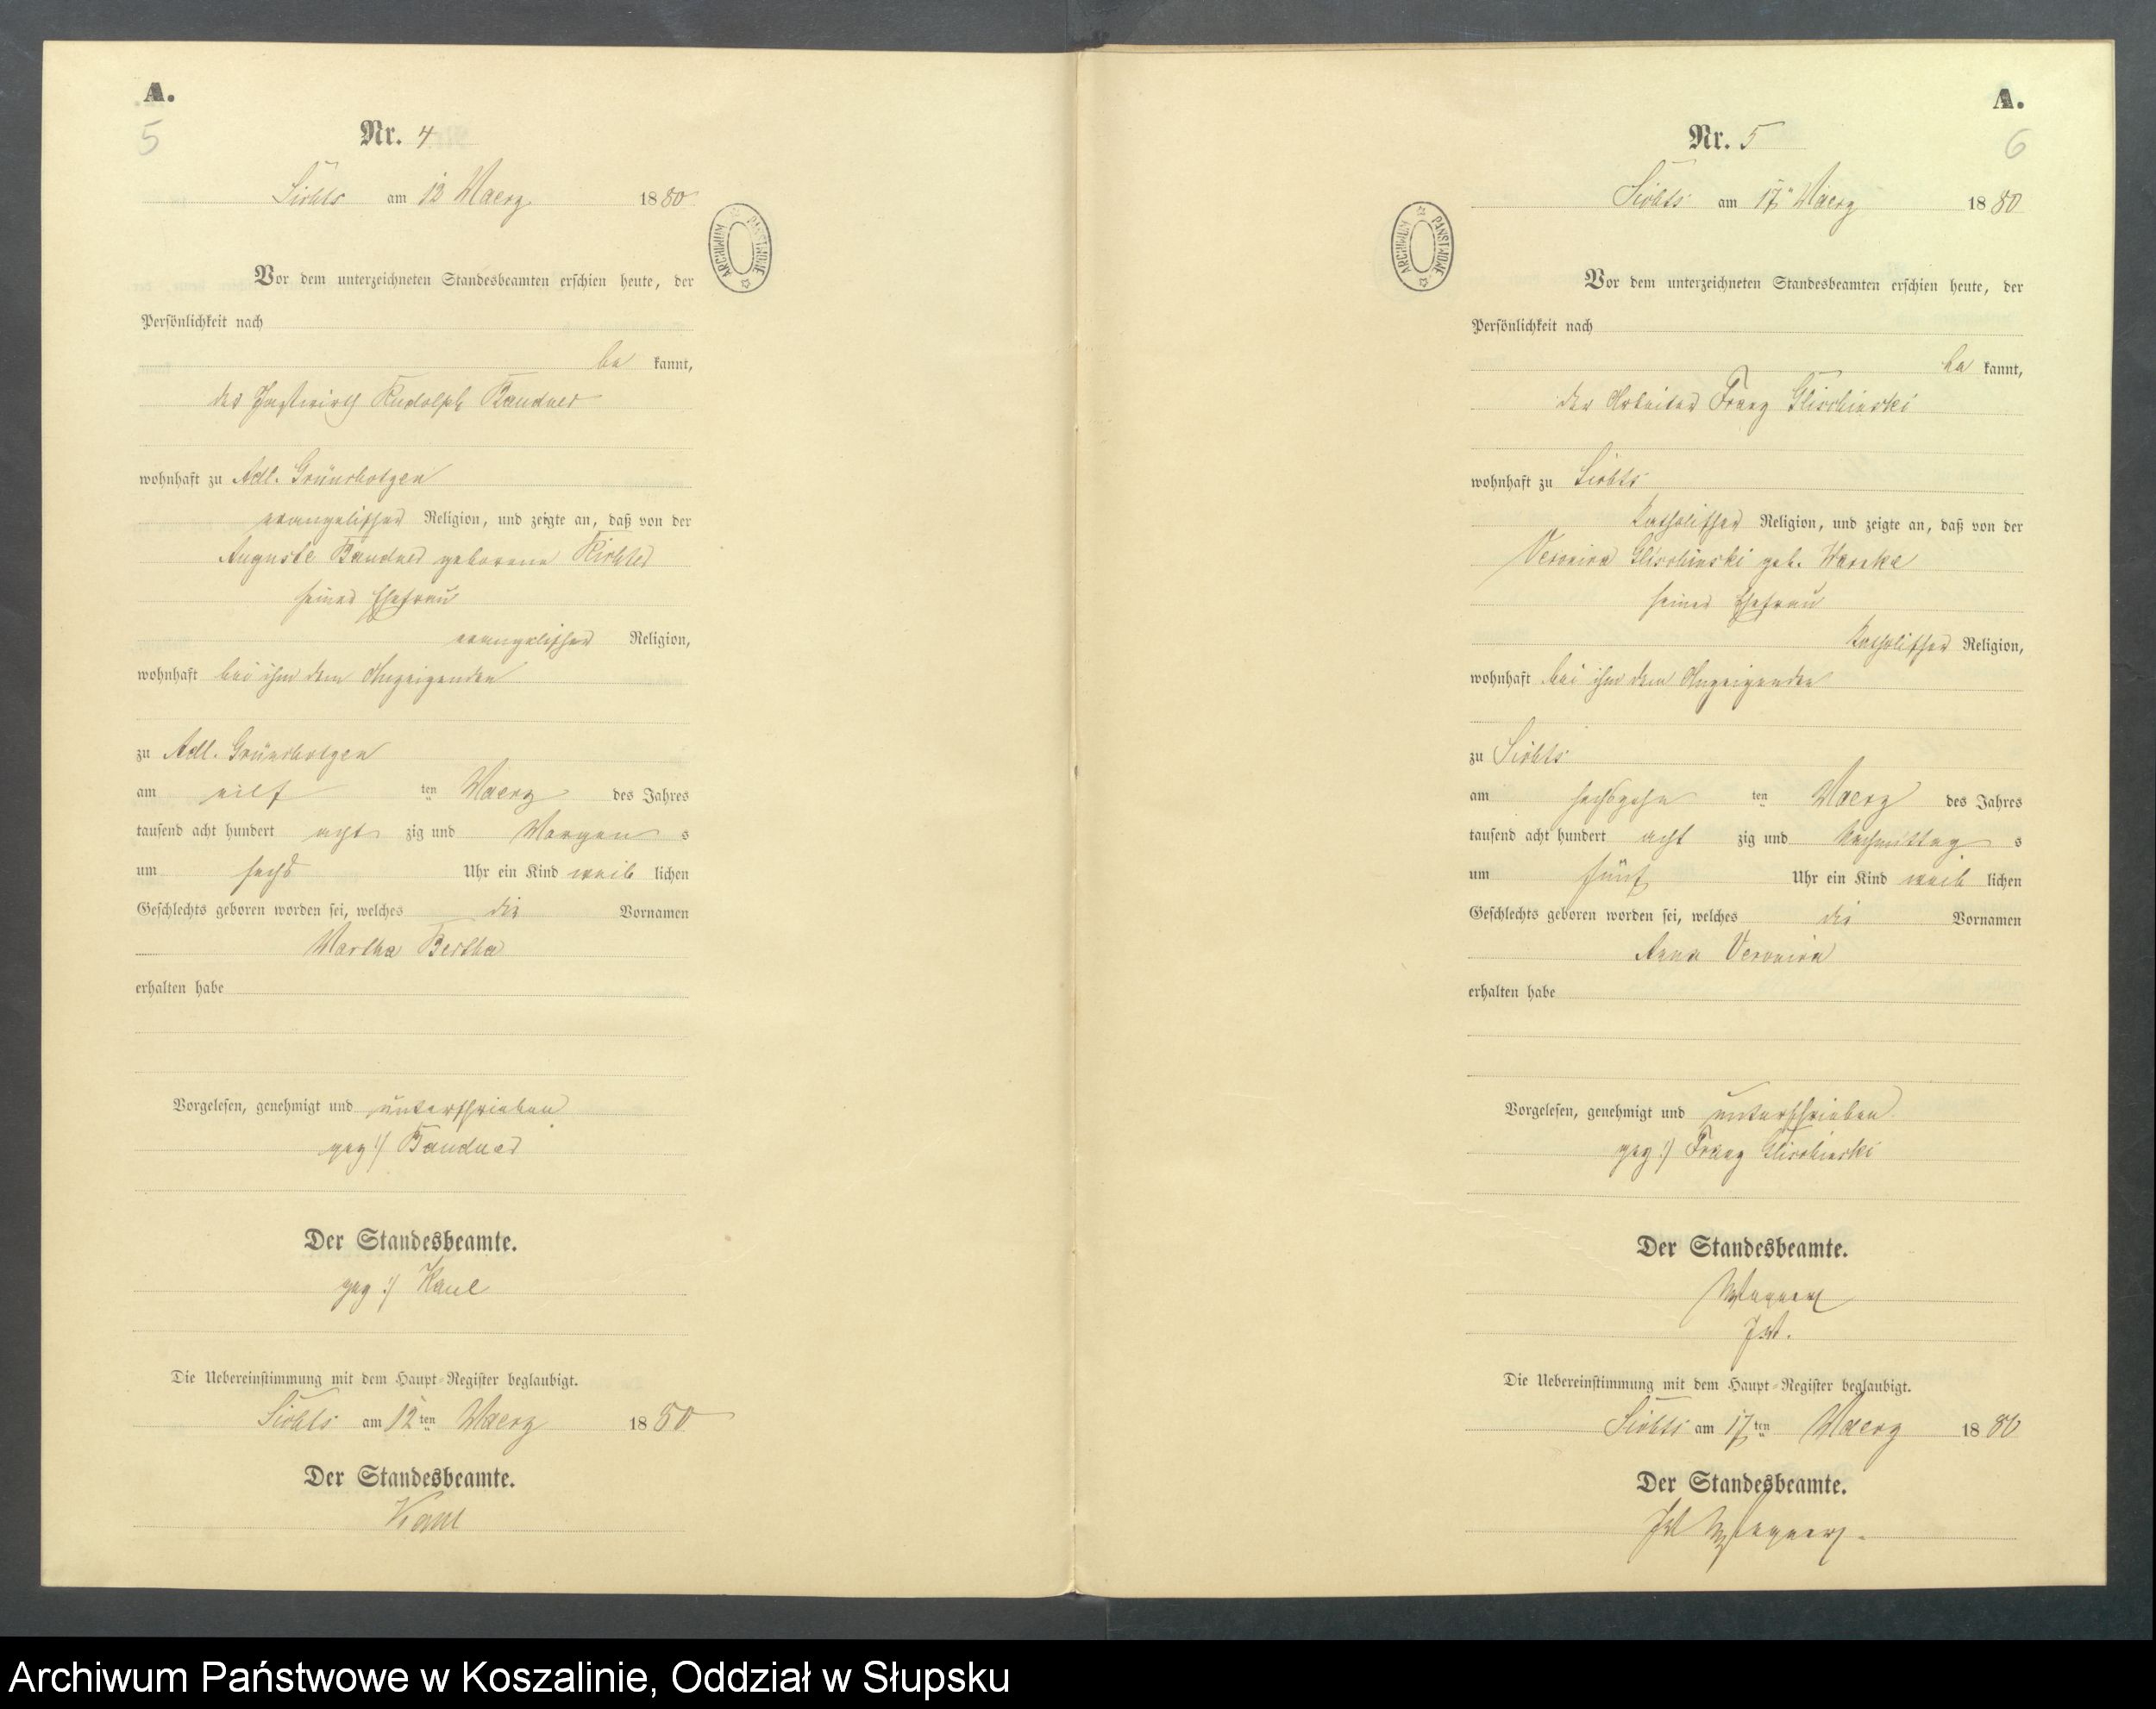 A.
5
Nr. 4
am 13 Maerz 1880
ARCHIWUM PAŃSTWOWE
Vor dem unterzeichneten Standesbeamten erschien heute, der
Persönlichkeit nach
be kannt,
der Gastwirth Rudolph Bandner
wohnhaft zu Adl.
evangelischer Religion, und zeigte an, daß von der
Auguste Bandner geborene Richter
seiner Ehefrau
evangelischer Religion,
wohnhaft bei ihm dem Anzeigenden
zu Adl.
am eilf ten Maerz des Jahres
tausend acht hundert acht zig und Morgen s
um sechs Uhr ein Kind weib lichen
Geschlechts geboren worden sei, welches die Vornamen
Martha Bertha
erhalten habe
Vorgelesen, genehmigt und unterschrieben
gez :/ Bandner
Der Standesbeamte.
gez :/ Kaul
Die Uebereinstimmung mit dem Haupt-Register beglaubigt.
am 12ten Maerz 1880
Der Standesbeamte.
Kaul
A.
6
Nr. 5
am 17 Maerz 1880
ARCHIWUM PAŃSTWOWE
Vor dem unterzeichneten Standesbeamten erschien heute, der
Persönlichkeit nach
be kannt,
der Arbeiter Franz Glischinski
wohnhaft zu
katholischer Religion, und zeigte an, daß von der
Veronica Glischinski geb.
seiner Ehefrau
katholischer Religion,
wohnhaft bei ihm dem Anzeigenden
zu
am sechszehn ten Maerz des Jahres
tausend acht hundert acht zig und Nachmittag s
um fünf Uhr ein Kind weib lichen
Geschlechts geboren worden sei, welches die Vornamen
Anna Veronica
erhalten habe
Vorgelesen, genehmigt und unterschrieben
gez :/ Franz Glischinski
Der Standesbeamte.
Die Uebereinstimmung mit dem Haupt-Register beglaubigt.
am 17ten Maerz 1880
Der Standesbeamte.
Archiwum Państwowe w Koszalinie, Oddział w Słupsku